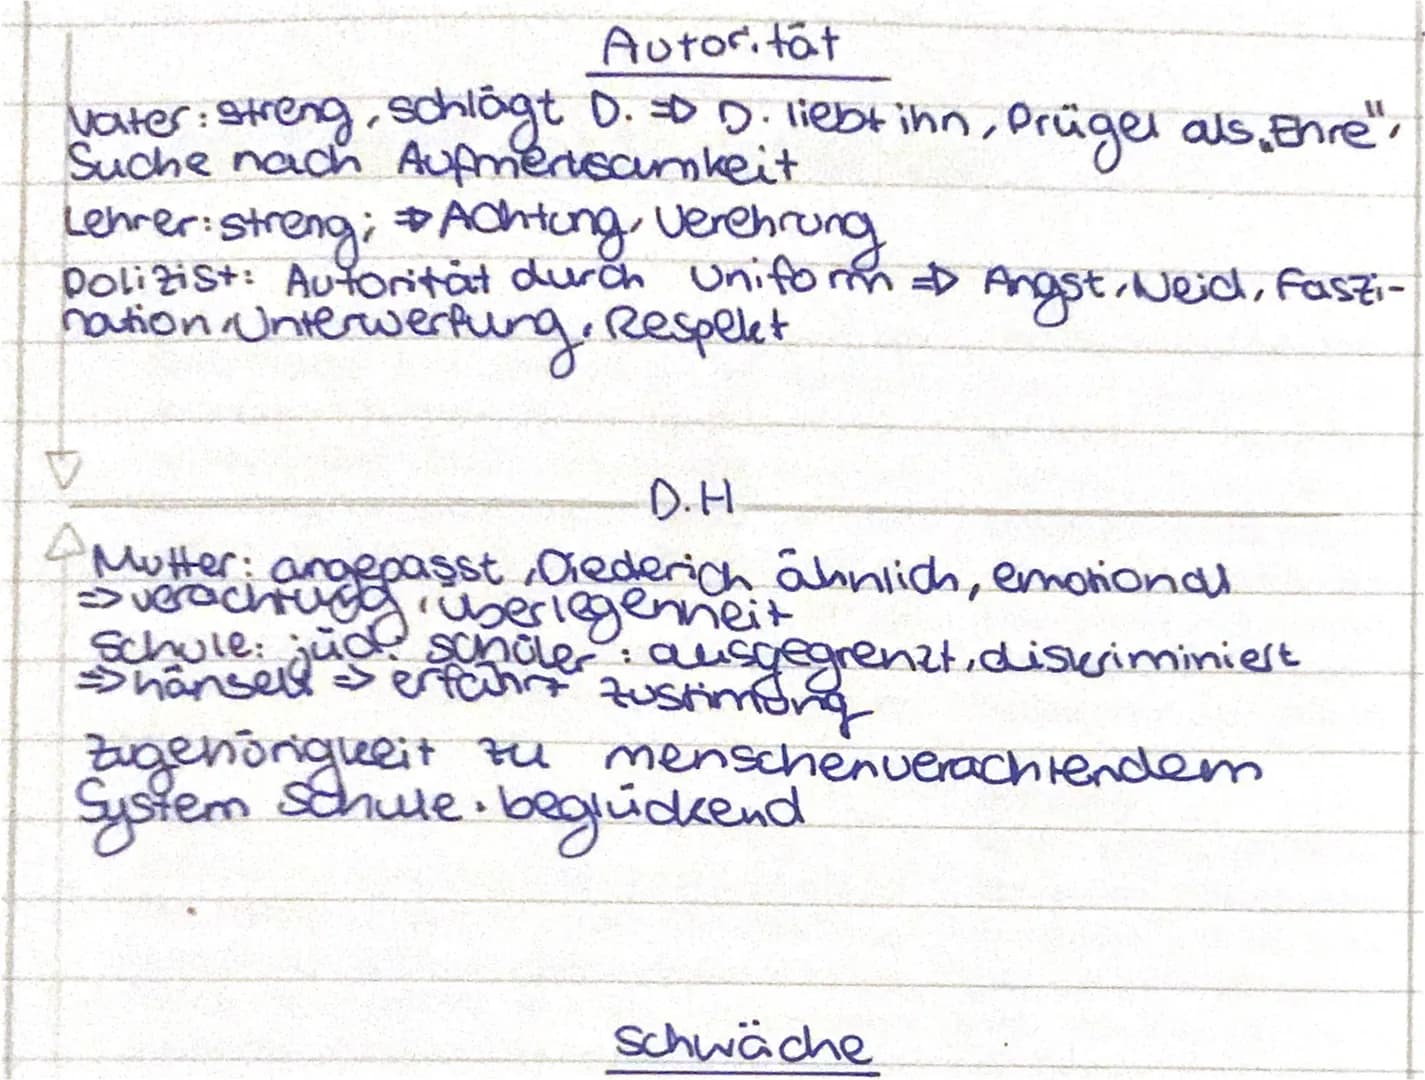 Autorität
Vater: streng, schlägt D. => D. liebt ihn, Prügel als „Ehre",
Suche nach Aufmerksamkeit
Lehrer: streng; => Achtung, Verehrung
Polizist: Autorität durch Uniform => Angst, Neid, Faszi-
nation, Unterwerfung, Respekt
D.H
Mutter: angepasst, Diederich ähnlich, emotional
=> Verachtung, überlegenheit
Schule: jüd. Schüler: ausgegrenzt, diskriminiert
=> hänselt => erfährt Zustimmung
Zugehörigkeit zu menschenverachtendem
System Schule. beglückend
Schwäche